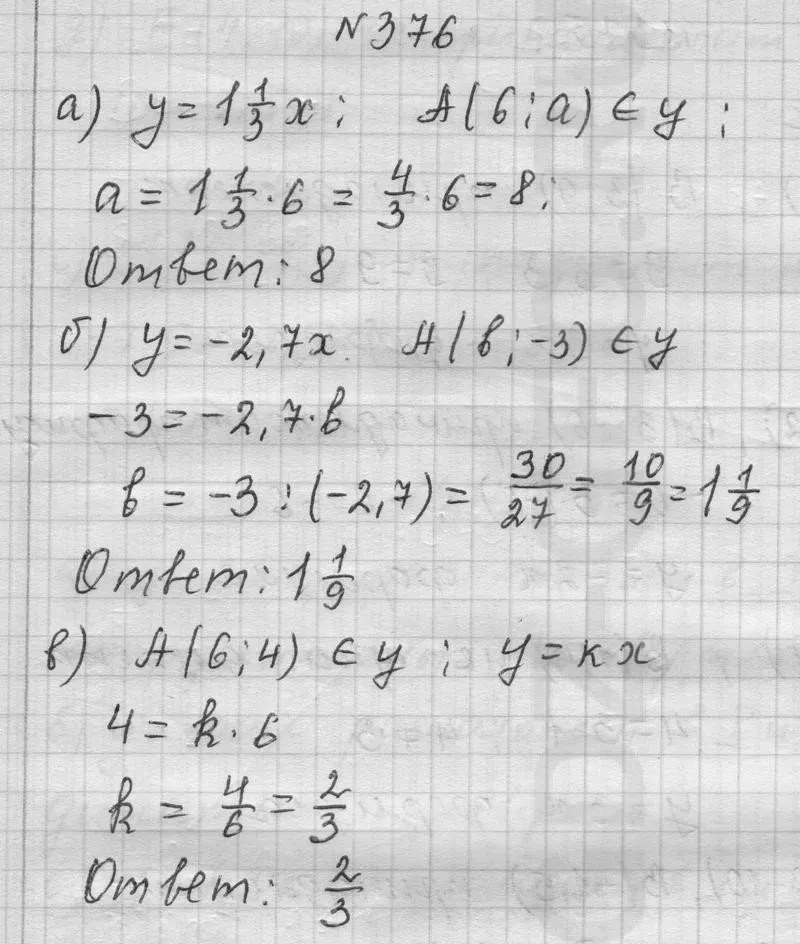 №376
а) y = 1 1/3 x ; A(6 ; a) ∈ y ;
a = 1 1/3 · 6 = 4/3 · 6 = 8 ;
Ответ: 8
б) y = -2,7x. A(в ; -3) ∈ y
-3 = -2,7 · в
в = -3 : (-2,7) = 30/27 = 10/9 = 1 1/9
Ответ: 1 1/9
в) A(6 ; 4) ∈ y ; y = кx
4 = k · 6
k = 4/6 = 2/3
Ответ: 2/3